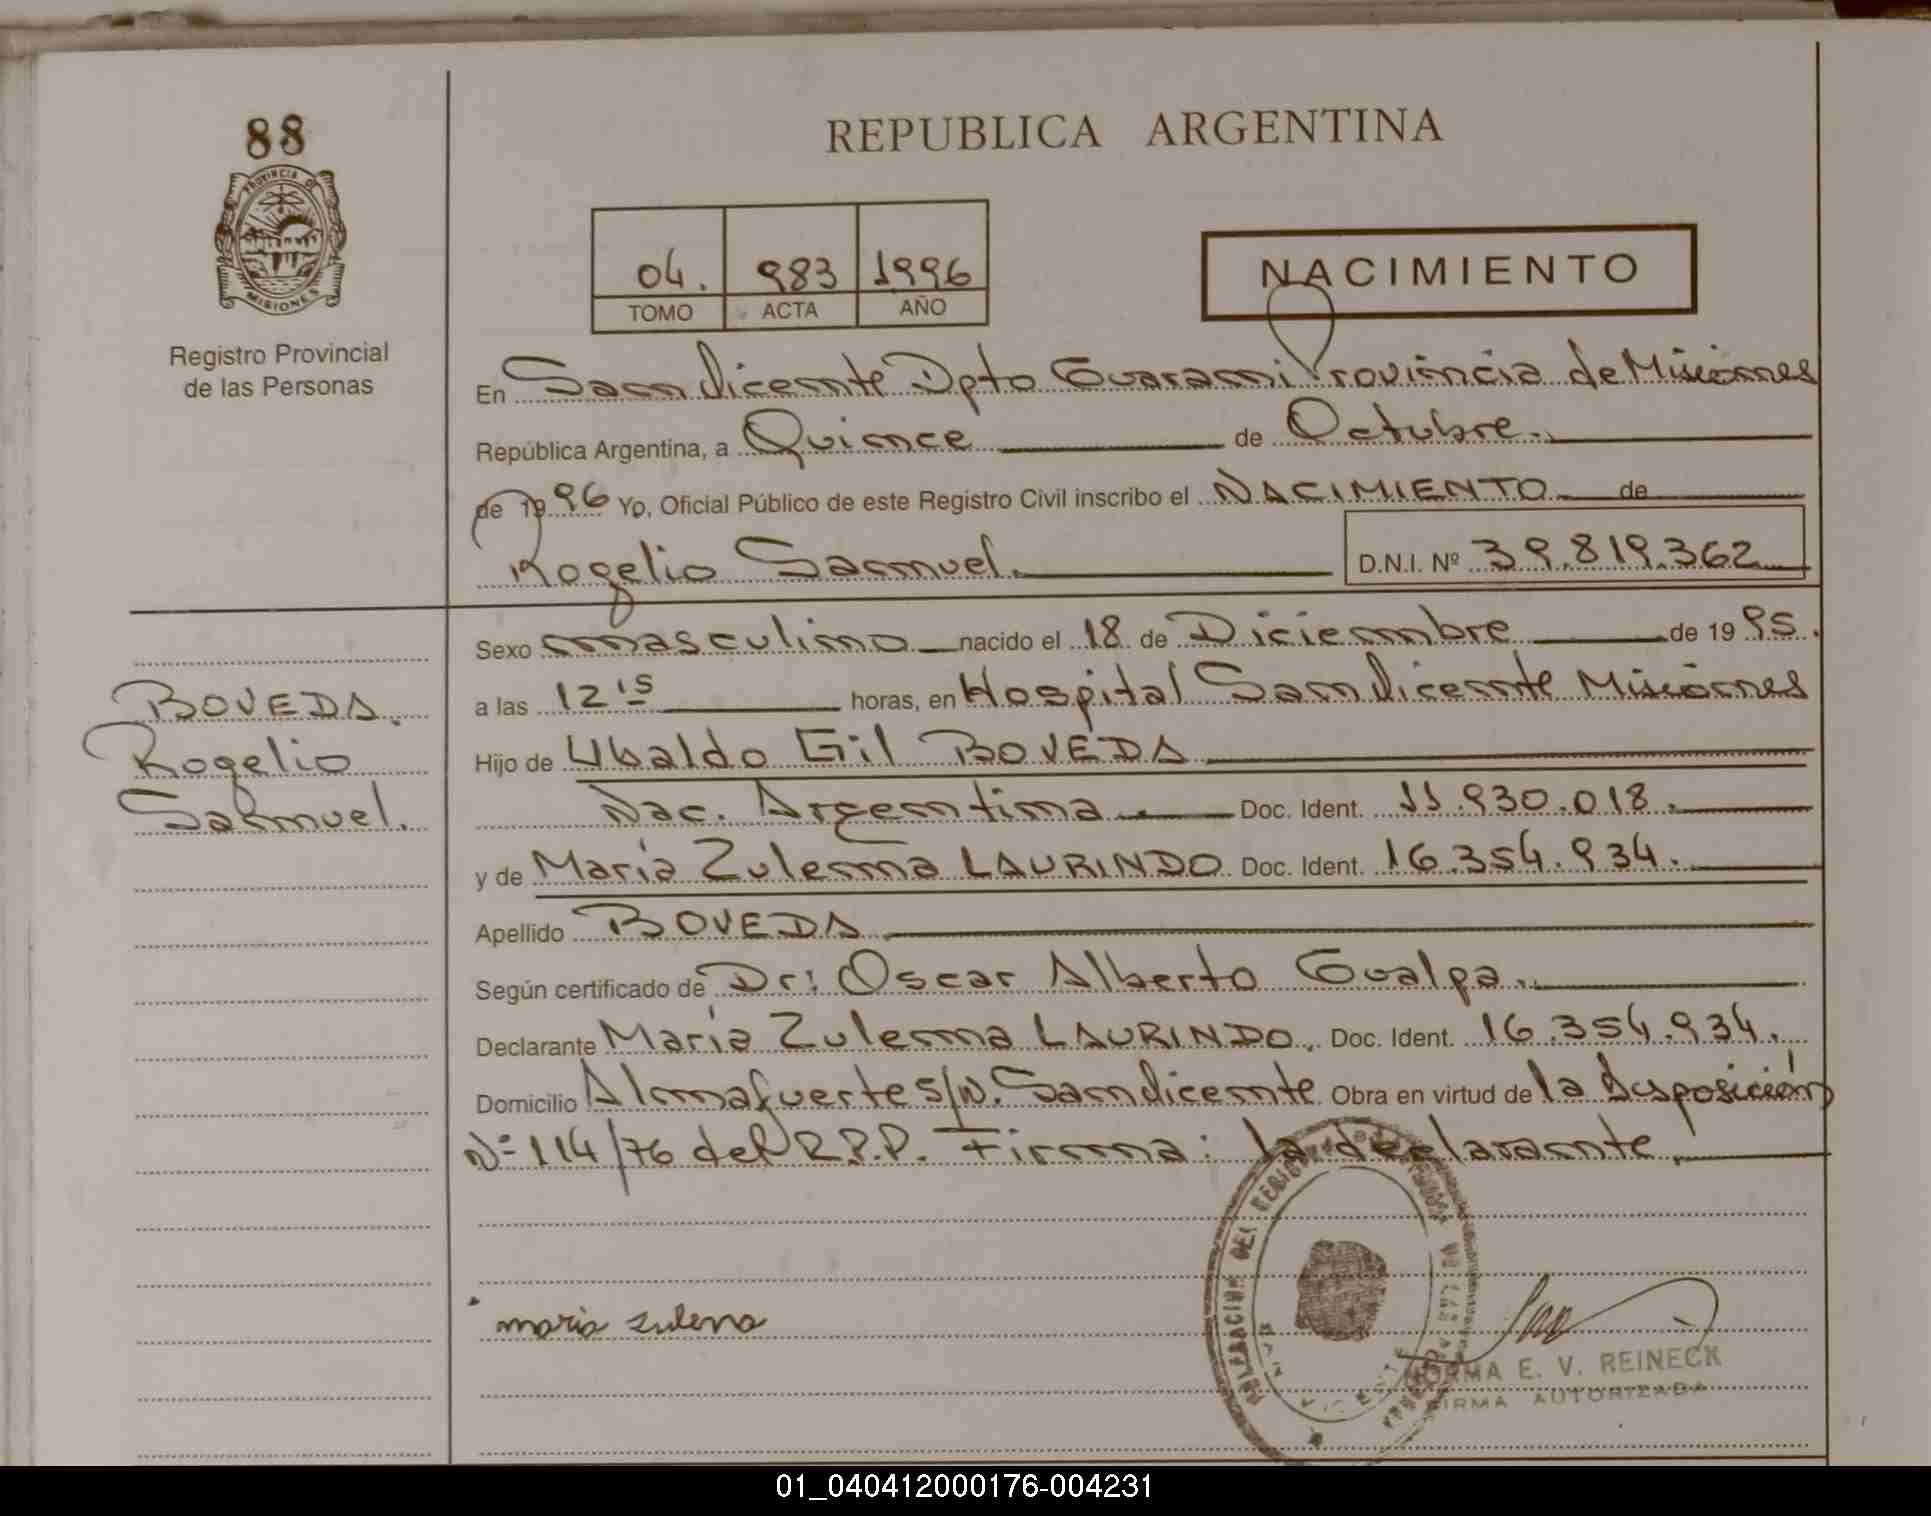 88
PROVINCIA DE
MISIONES
Registro Provincial
de las Personas
REPUBLICA ARGENTINA
04. 983 1996
TOMO ACTA AÑO
NACIMIENTO
En San Vicente Dpto Guarani Provincia de Misiones
República Argentina, a Quince de Octubre.
de 1996 Yo, Oficial Público de este Registro Civil inscribo el NACIMIENTO de
Rogelio Samuel. D.N.I. Nº 39.819.362
BOVEDA.
Rogelio
Samuel.
Sexo masculino nacido el 18 de Diciembre de 1995.
a las 12 15 horas, en Hospital San Vicente Misiones
Hijo de Ubaldo Gil BOVEDA
Nac. Argentina. Doc. Ident. 11.930.018.
y de María Zulema LAURINDO Doc. Ident. 16.354.934.
Apellido BOVEDA
Según certificado de Dr: Oscar Alberto Gualpa.
Declarante María Zulema LAURINDO. Doc. Ident. 16.354.934.
Domicilio Almafuerte S/N. San Vicente Obra en virtud de la Disposición
Nº 114/76 del R.P.P. Firma: la declarante.
maria zulema
SAN VICENTE
NORMA E. V. REINECK
FIRMA AUTORIZADA
01_040412000176-004231